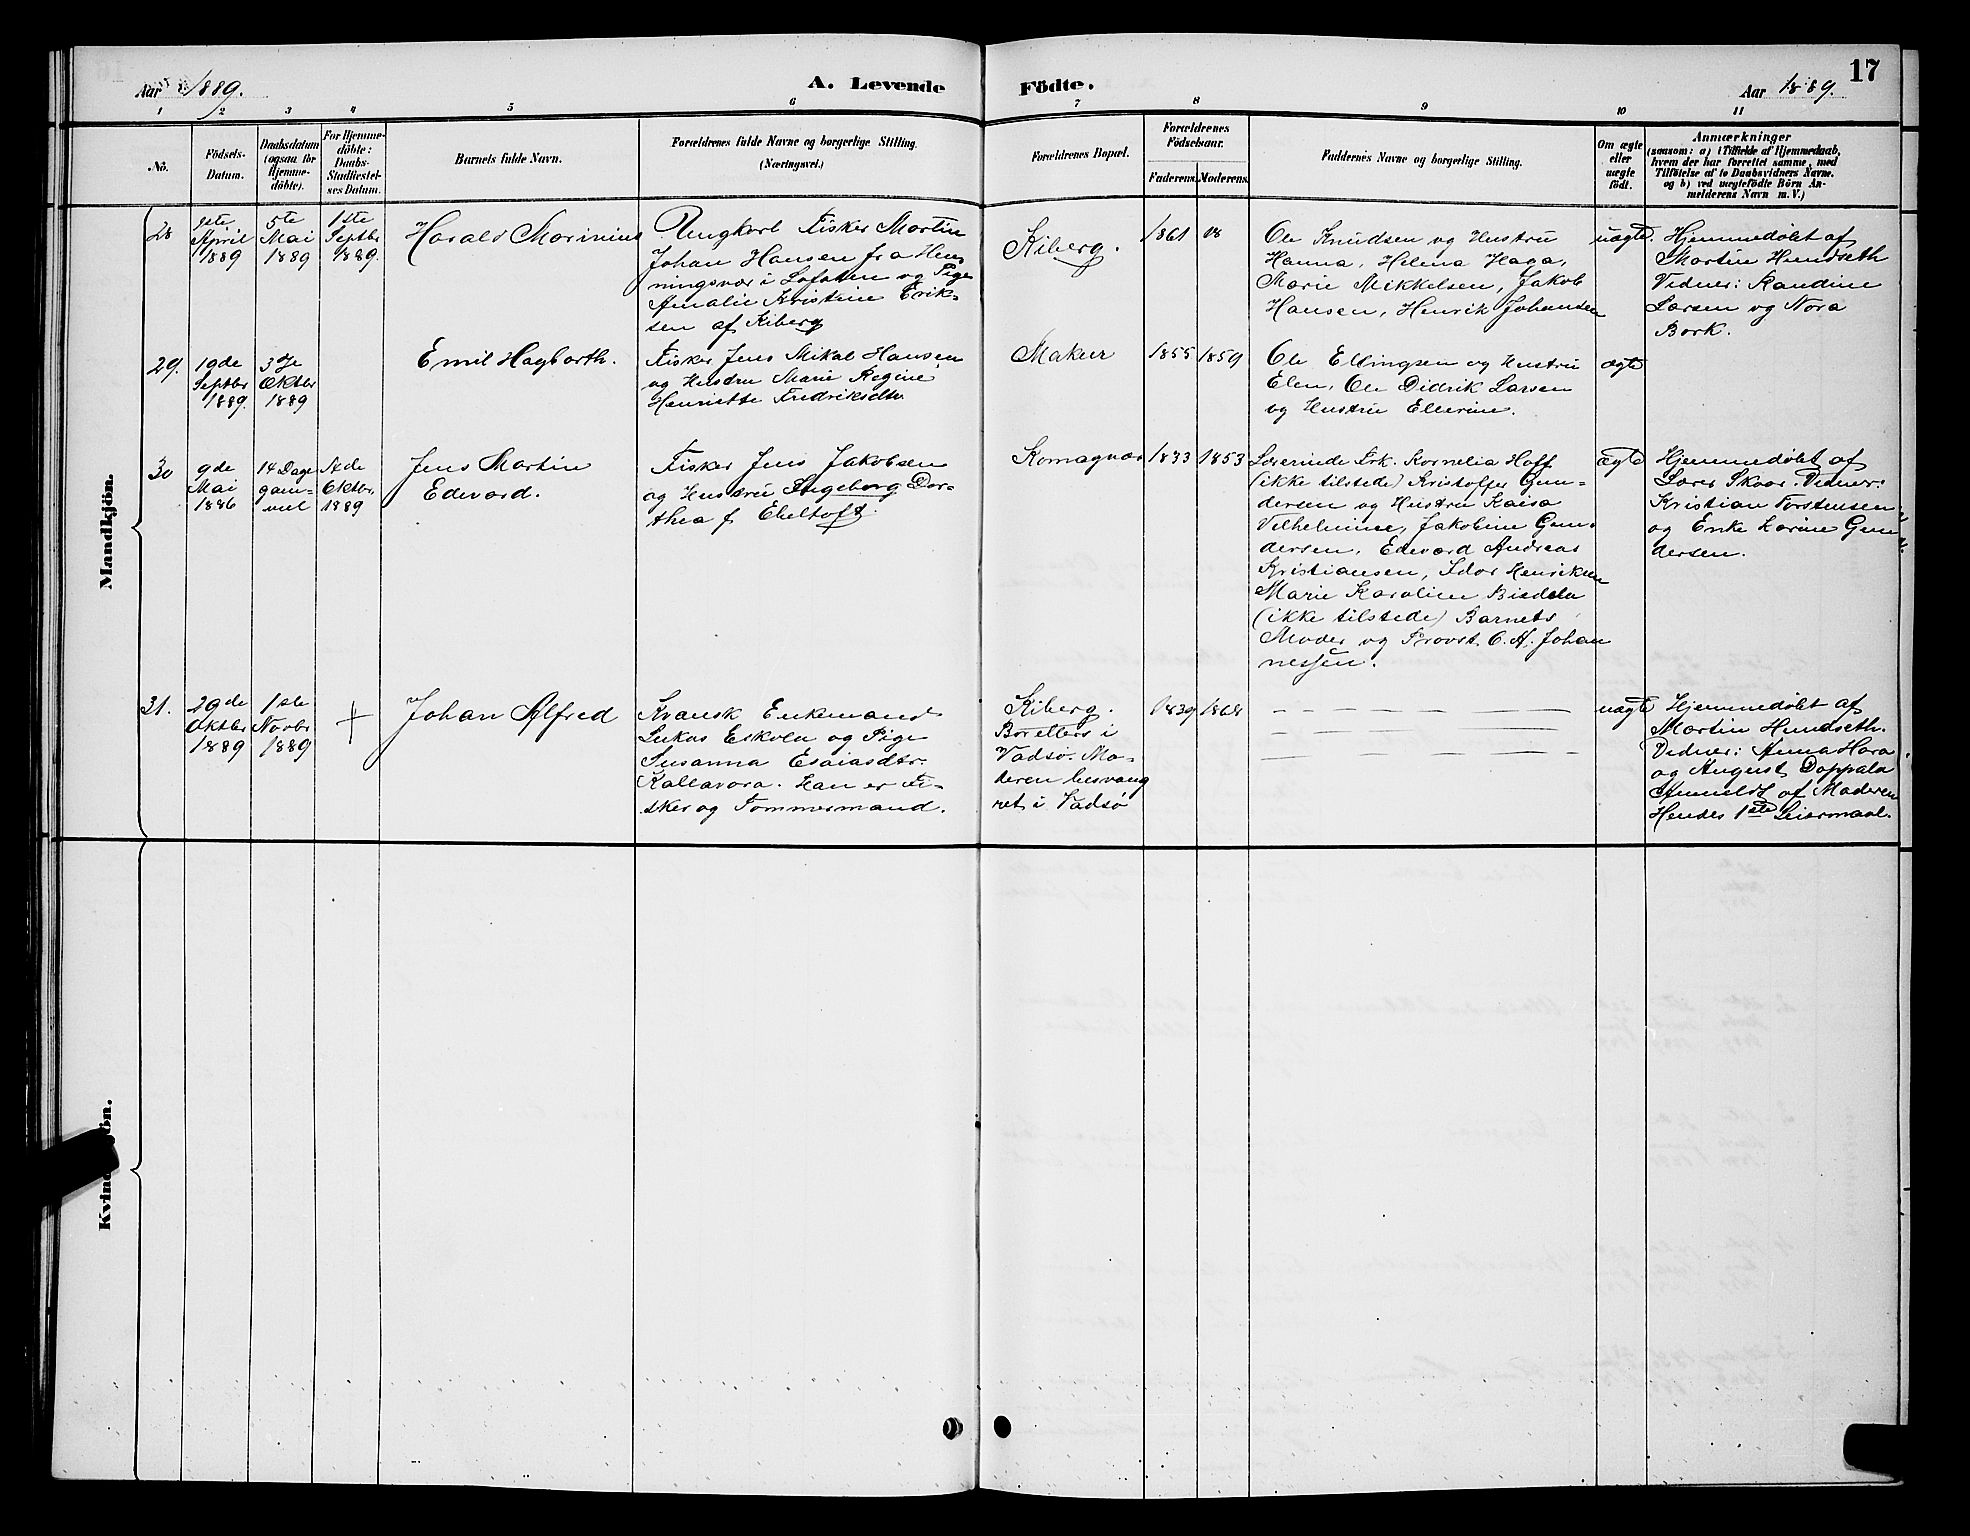 Aar 1889.
A. Levende
Födte.
17
Aar 1889.
1 2 3 4 5 6 7 8 9 10 11
No.
Födsels-
Datum.
Daabsdatum
(ogsaa for
Hjemme-
döbte).
For Hjemme-
döbte:
Daabs-
Stadfæstel-
ses Datum.
Barnets fulde Navn.
Forældrenes fulde Navne og borgerlige Stilling.
(Næringsvei.)
Forældrenes Bopæl.
Forældrenes
Födselsaar.
Faderens. Moderens.
Faddernes Navne og borgerlige Stilling.
Om ægte
eller
uægte
födt.
Anmærkninger
(saasom: a) i Tilfælde af Hjemmedaab,
hvem der har forrettet samme, med
Tilföielse af to Daabsvidners Navne.
og b) ved uægtefödte Börn An-
melderens Navn m. V.)
Mandkjön.
28
April
1889
5te
Mai
1889
1ste
Septbr
1889.
Harald Marinius
Ungkarl Fisker Martin
Johan Hansen fra Hen-
ningsvær i Lofoten og Pige
Amalie Kristine Erik-
sen af Kiberg
Kiberg.
1861
68
Ole Knudsen og Hustru
Hanna, Helena Haga,
Marie Mikkelsen, Jakob
Hansen, Henrik Johansen
uægte.
Hjemmedøbt af
Martin Hundseth
Vidner: Randine
Larsen og Nora
Bork.
29.
19de
Septbr
1889.
3je
Oktbr
1889
Emil Hagbarth.
Fisker Jens Mikal Hansen
og Hustru Marie Regine
Henriette Fredriksdtr
Makur
1855
1859
Ole Ellingsen og Hustru
Elen, Ole Didrik Larsen
og Hustru Ellerine.
ægte
30
9de
Mai
1886
14 Dage
gam-
mel
Oktbr
1889
Jens Martin
Edevard.
Fisker Jens Jakobsen
og Hustru Ingeborg Dor-
thea f. Ebeltoft.
Komagvær
1833
1853
Lærerinde Frk. Kornelia Hoff
(ikke tilstede) Kristoffer Gun-
dersen og Hustru Kaisa
Vilhelmine, Jakobine Gun-
dersen, Edevard Andreas
Kristiansen, Idor Henriksen
Marie Karoline
(ikke tilstede) Barnets
Moder og Provst C. A. Johan
nessen.
ægte
Hjemmedøbt af
Lærer Skaar. Vidner:
Kristian Torstensen
og Enke Karine Gun
dersen.
31.
29de
Oktbr
1889
1ste
Novbr
1889
+
Johan Alfred
Kvænsk Enkemand
Lukas Eskola og Pige
Susanna Esaiasdtr.
Kallavara. Han er Fi-
sker og Tømmermand.
Kiberg.
Vadsø. Mo-
deren besvang
ret i Vadsø
1839
1868
uægte
Hjemmedøbt af
Martin Hundseth.
Vidner: Anna Hara
og August Doppala
Anmeldt af Moderen
Hendes 1ste Leiermaal.